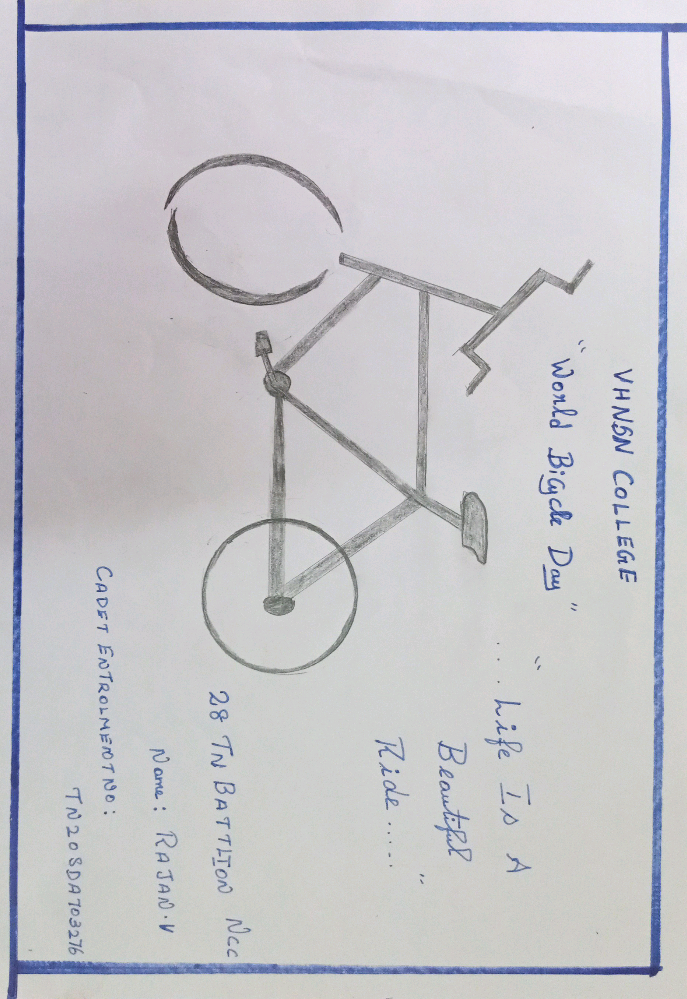 VHNSN COLLEGE
"World Bicycle Day"
"... Life Is A
Beautiful
Ride....."
28 TN BATTLION NCC
Name: RAJAN.V
CADET ENTROLMENT NO:
TN20SDA703276